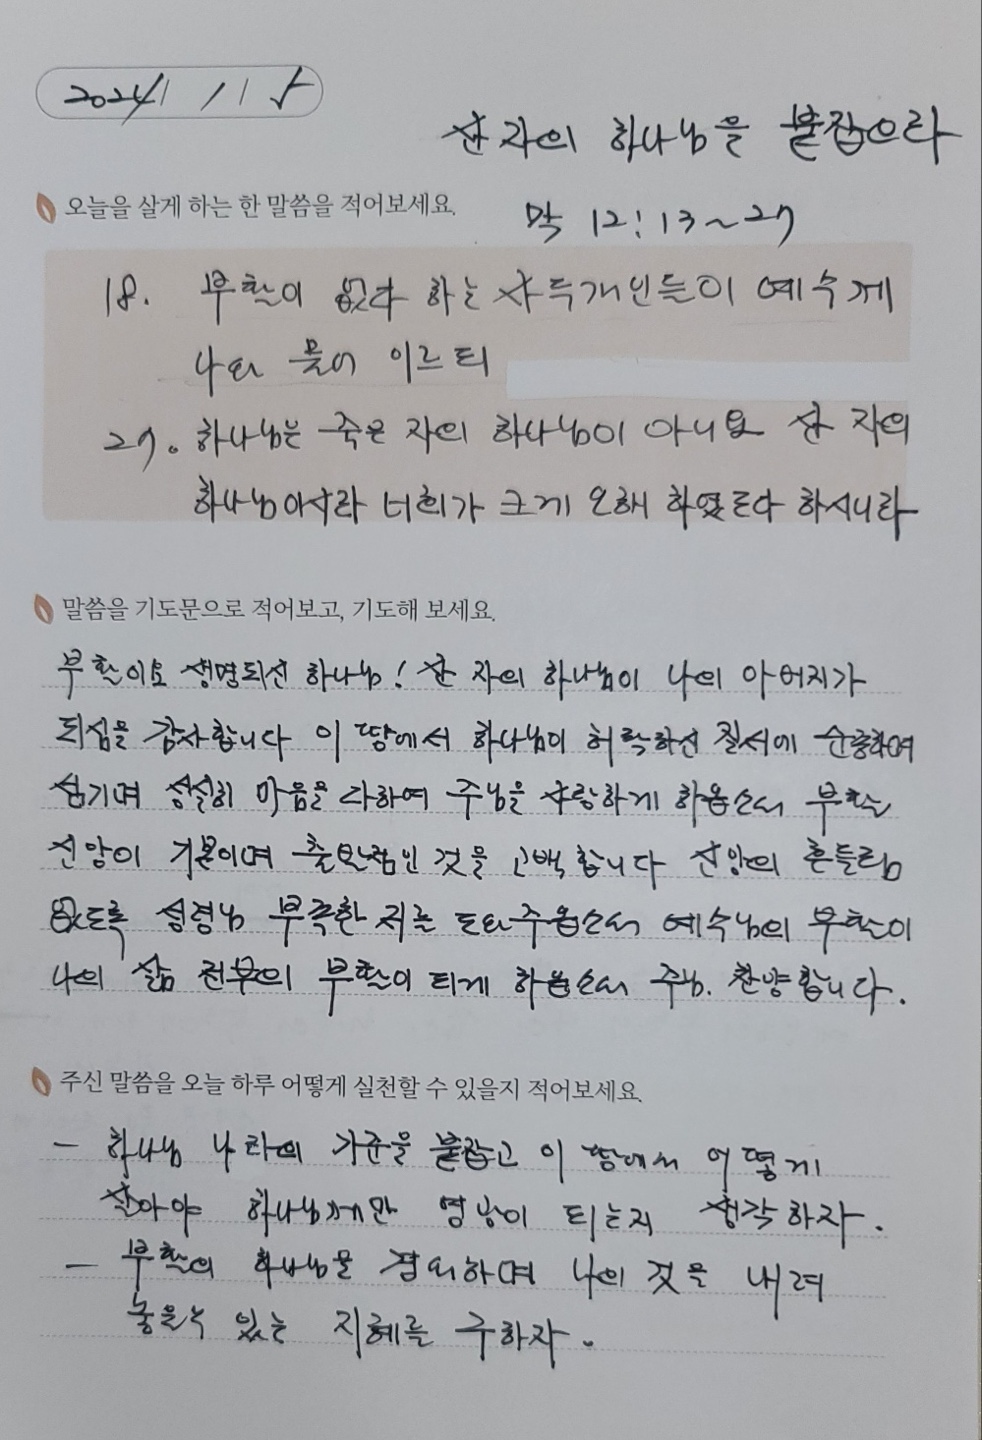 2024/ 11 5
산 자의 하나님을 붙잡으라
오늘을 살게 하는 한 말씀을 적어보세요.
막 12:13~27
18. 부활이 없다 하는 사두개인들이 예수께
나와 물어 이르되
27. 하나님은 죽은 자의 하나님이 아니요 산 자의
하나님이시라 너희가 크게 오해 하였도다 하시니라
말씀을 기도문으로 적어보고, 기도해 보세요.
부활이요 생명되신 하나님! 산 자의 하나님이 나의 아버지가
되심을 감사합니다 이 땅에서 하나님이 허락하신 질서에 순종하여
섬기며 성실히 마음을 다하여 주님을 사랑하게 하옵소서 부활
신앙이 기본이며 출발점인 것을 고백합니다 신앙의 흔들림
없도록 성령님 부족한 저를 도와주옵소서 예수님의 부활이
나의 삶 전부의 부활이 되게 하옵소서 주님. 찬양합니다.
주신 말씀을 오늘 하루 어떻게 실천할 수 있을지 적어보세요.
- 하나님 나라의 기준을 붙잡고 이 땅에서 어떻게
살아야 하나님께만 영광이 되는지 생각하자.
- 부활의 하나님을 하며 나의 것을 내려
놓을수 있는 지혜를 구하자.